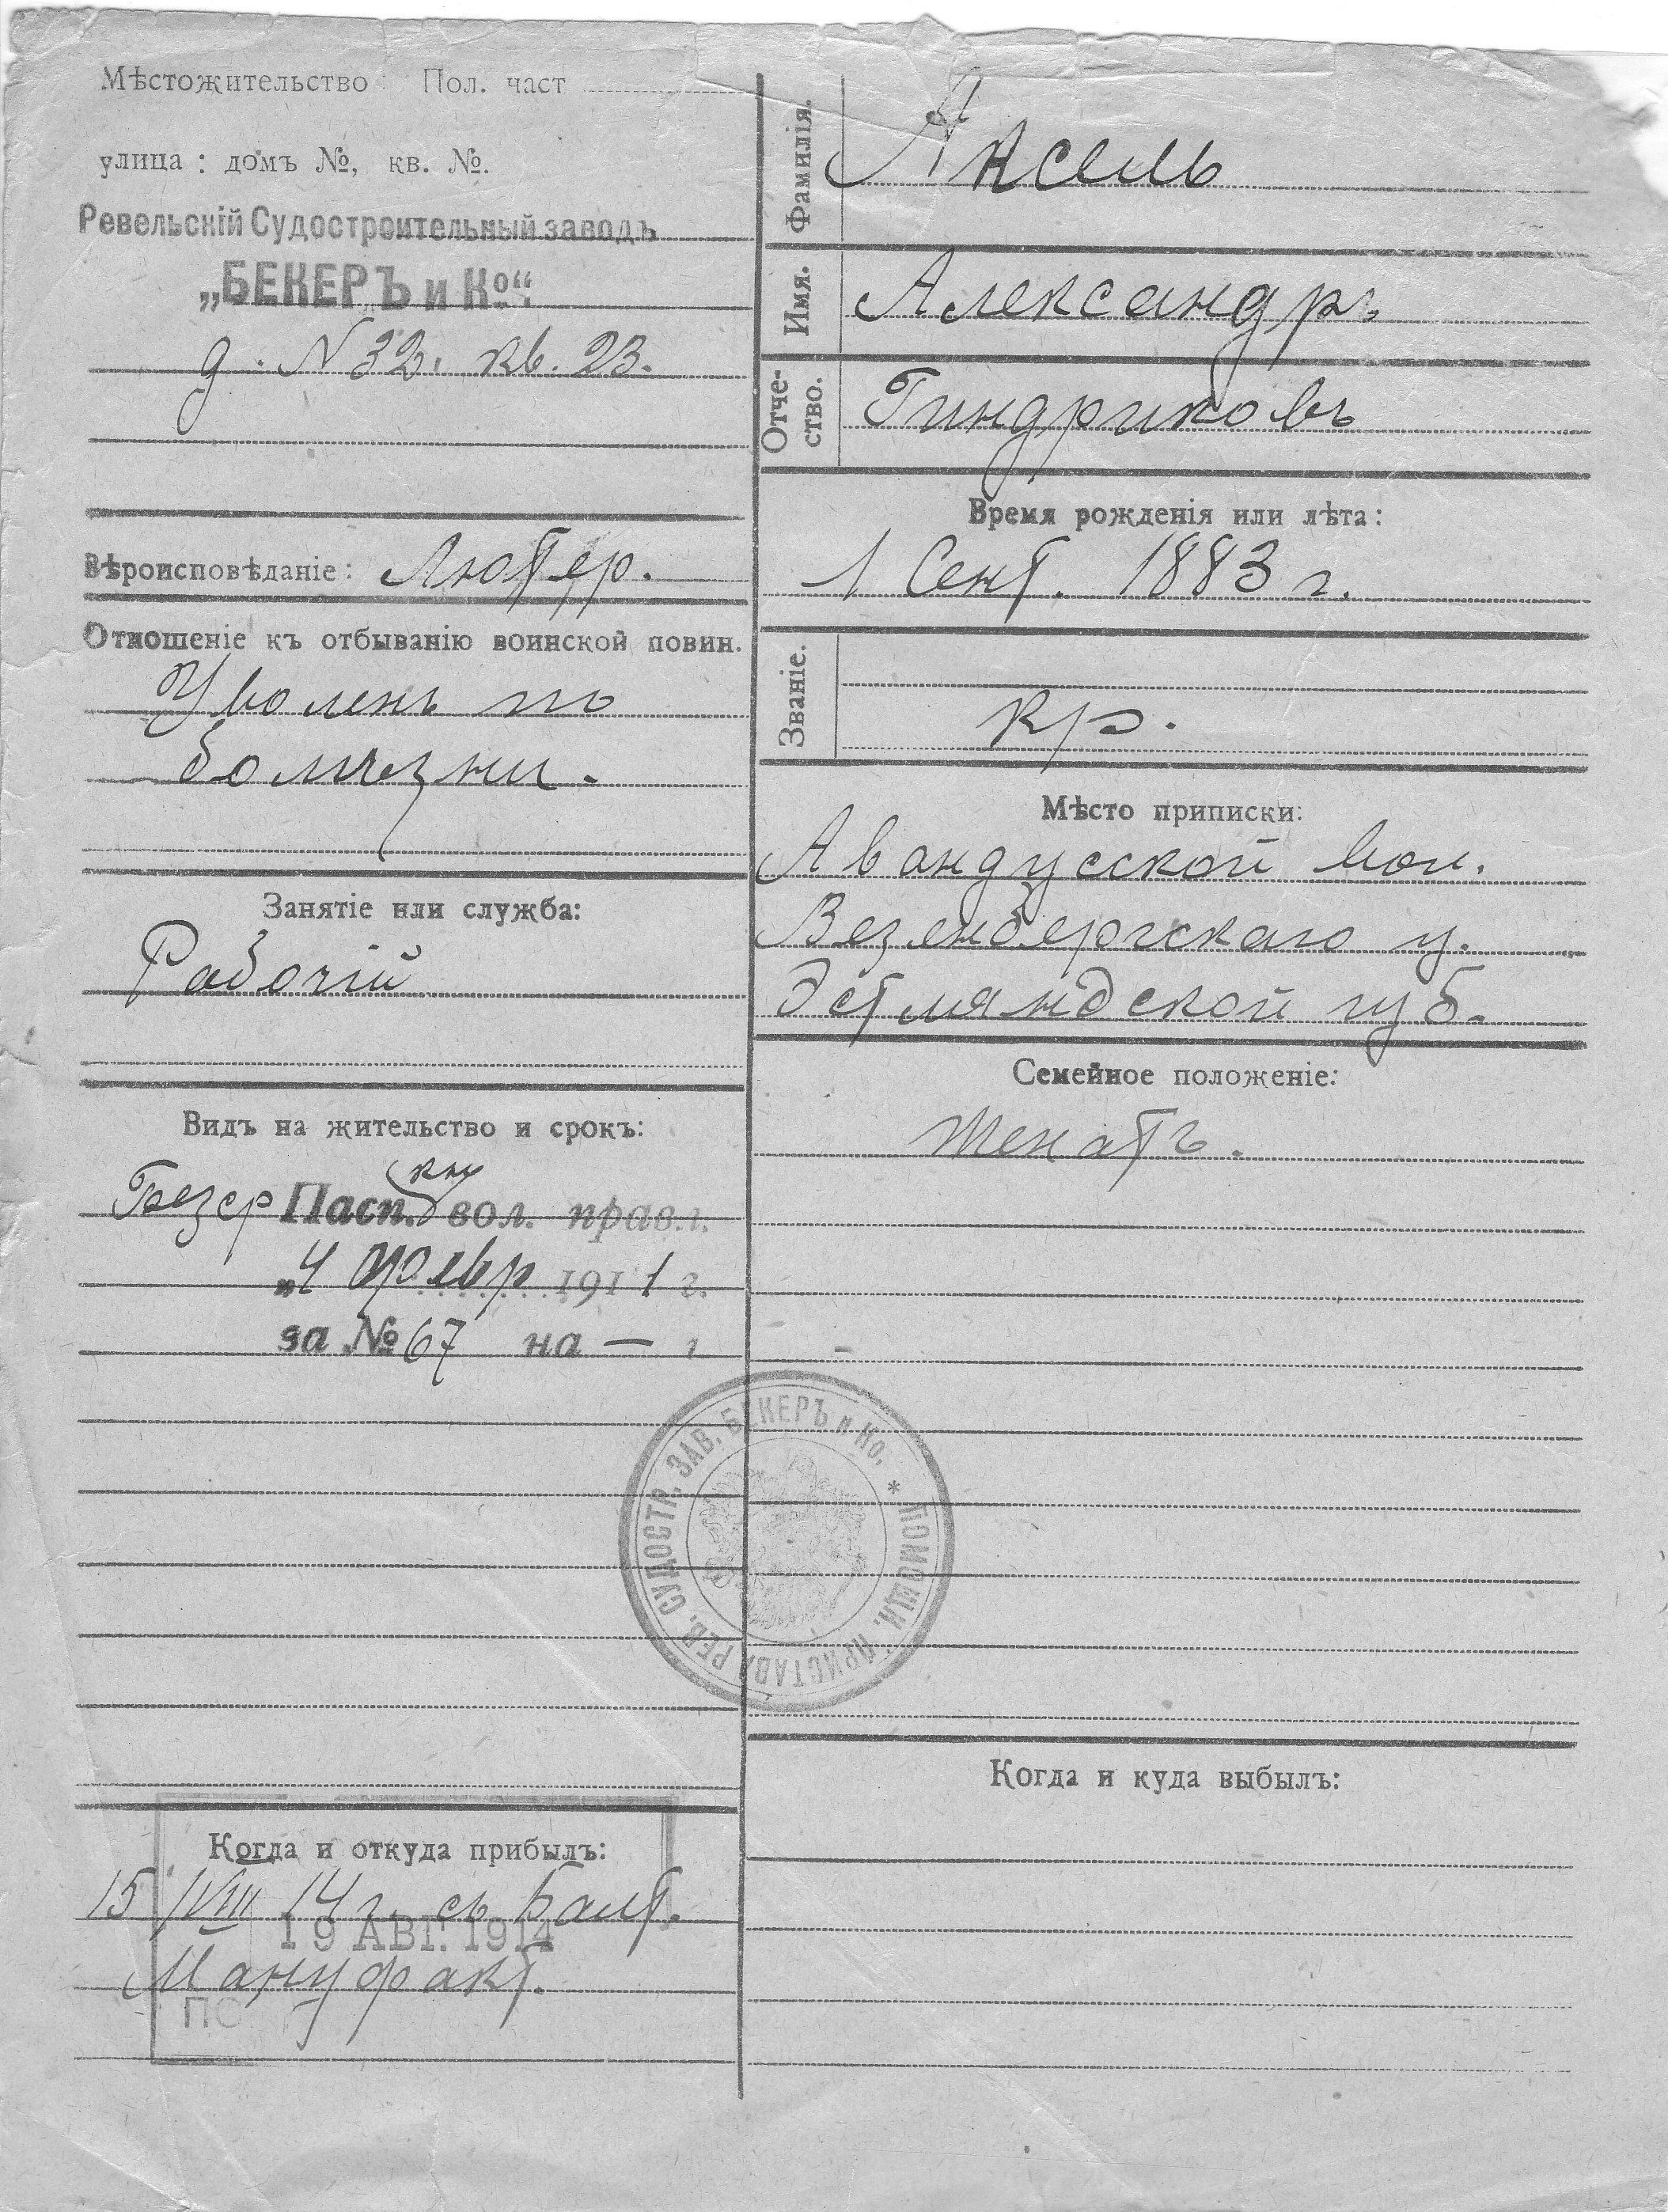 Мѣстожительство Пол. част
улица: домъ №, кв. №.
Ревельскій Судостроительный заводъ
„БЕКЕРЪ и Ко“.
д. N 32. кв. 23.
Вѣроисповѣданіе: Лютер.
Отношеніе къ отбыванію воинской повин.
Уволенъ по
болѣзни.
Занятіе или служба:
Рабочій
Видъ на жительство и срокъ:
кн
Безср Пасп. вол. прав.
„4 февр 1911 г.
за № 67 на — г
Когда и откуда прибылъ:
15/VIII 14 г. съ Балт.
19 АВГ. 1914
Мануфакт.
ПО
Фамилія. Аксель
Имя. Александръ
Отче-
ство.
Гиндриковъ
Время рожденія или лѣта:
1 Сент. 1883 г.
Званіе.
кр.
Мѣсто приписки:
Авандусской вол.
Везенбергскаго у.
Эстляндской губ.
Семейное положеніе:
Женатъ.
ПОМОЩН. ПРИСТАВА РЕВ. СУДОСТР. ЗАВ. БЕКЕРЪ и Ко. *
Когда и куда выбылъ: